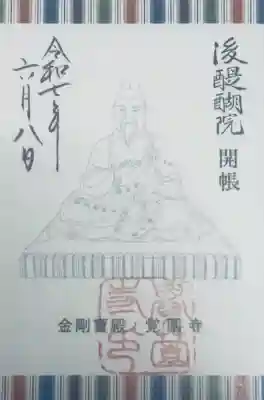 後醍醐院 開帳
令和七年
六月八日
金剛寶殿 覚園寺